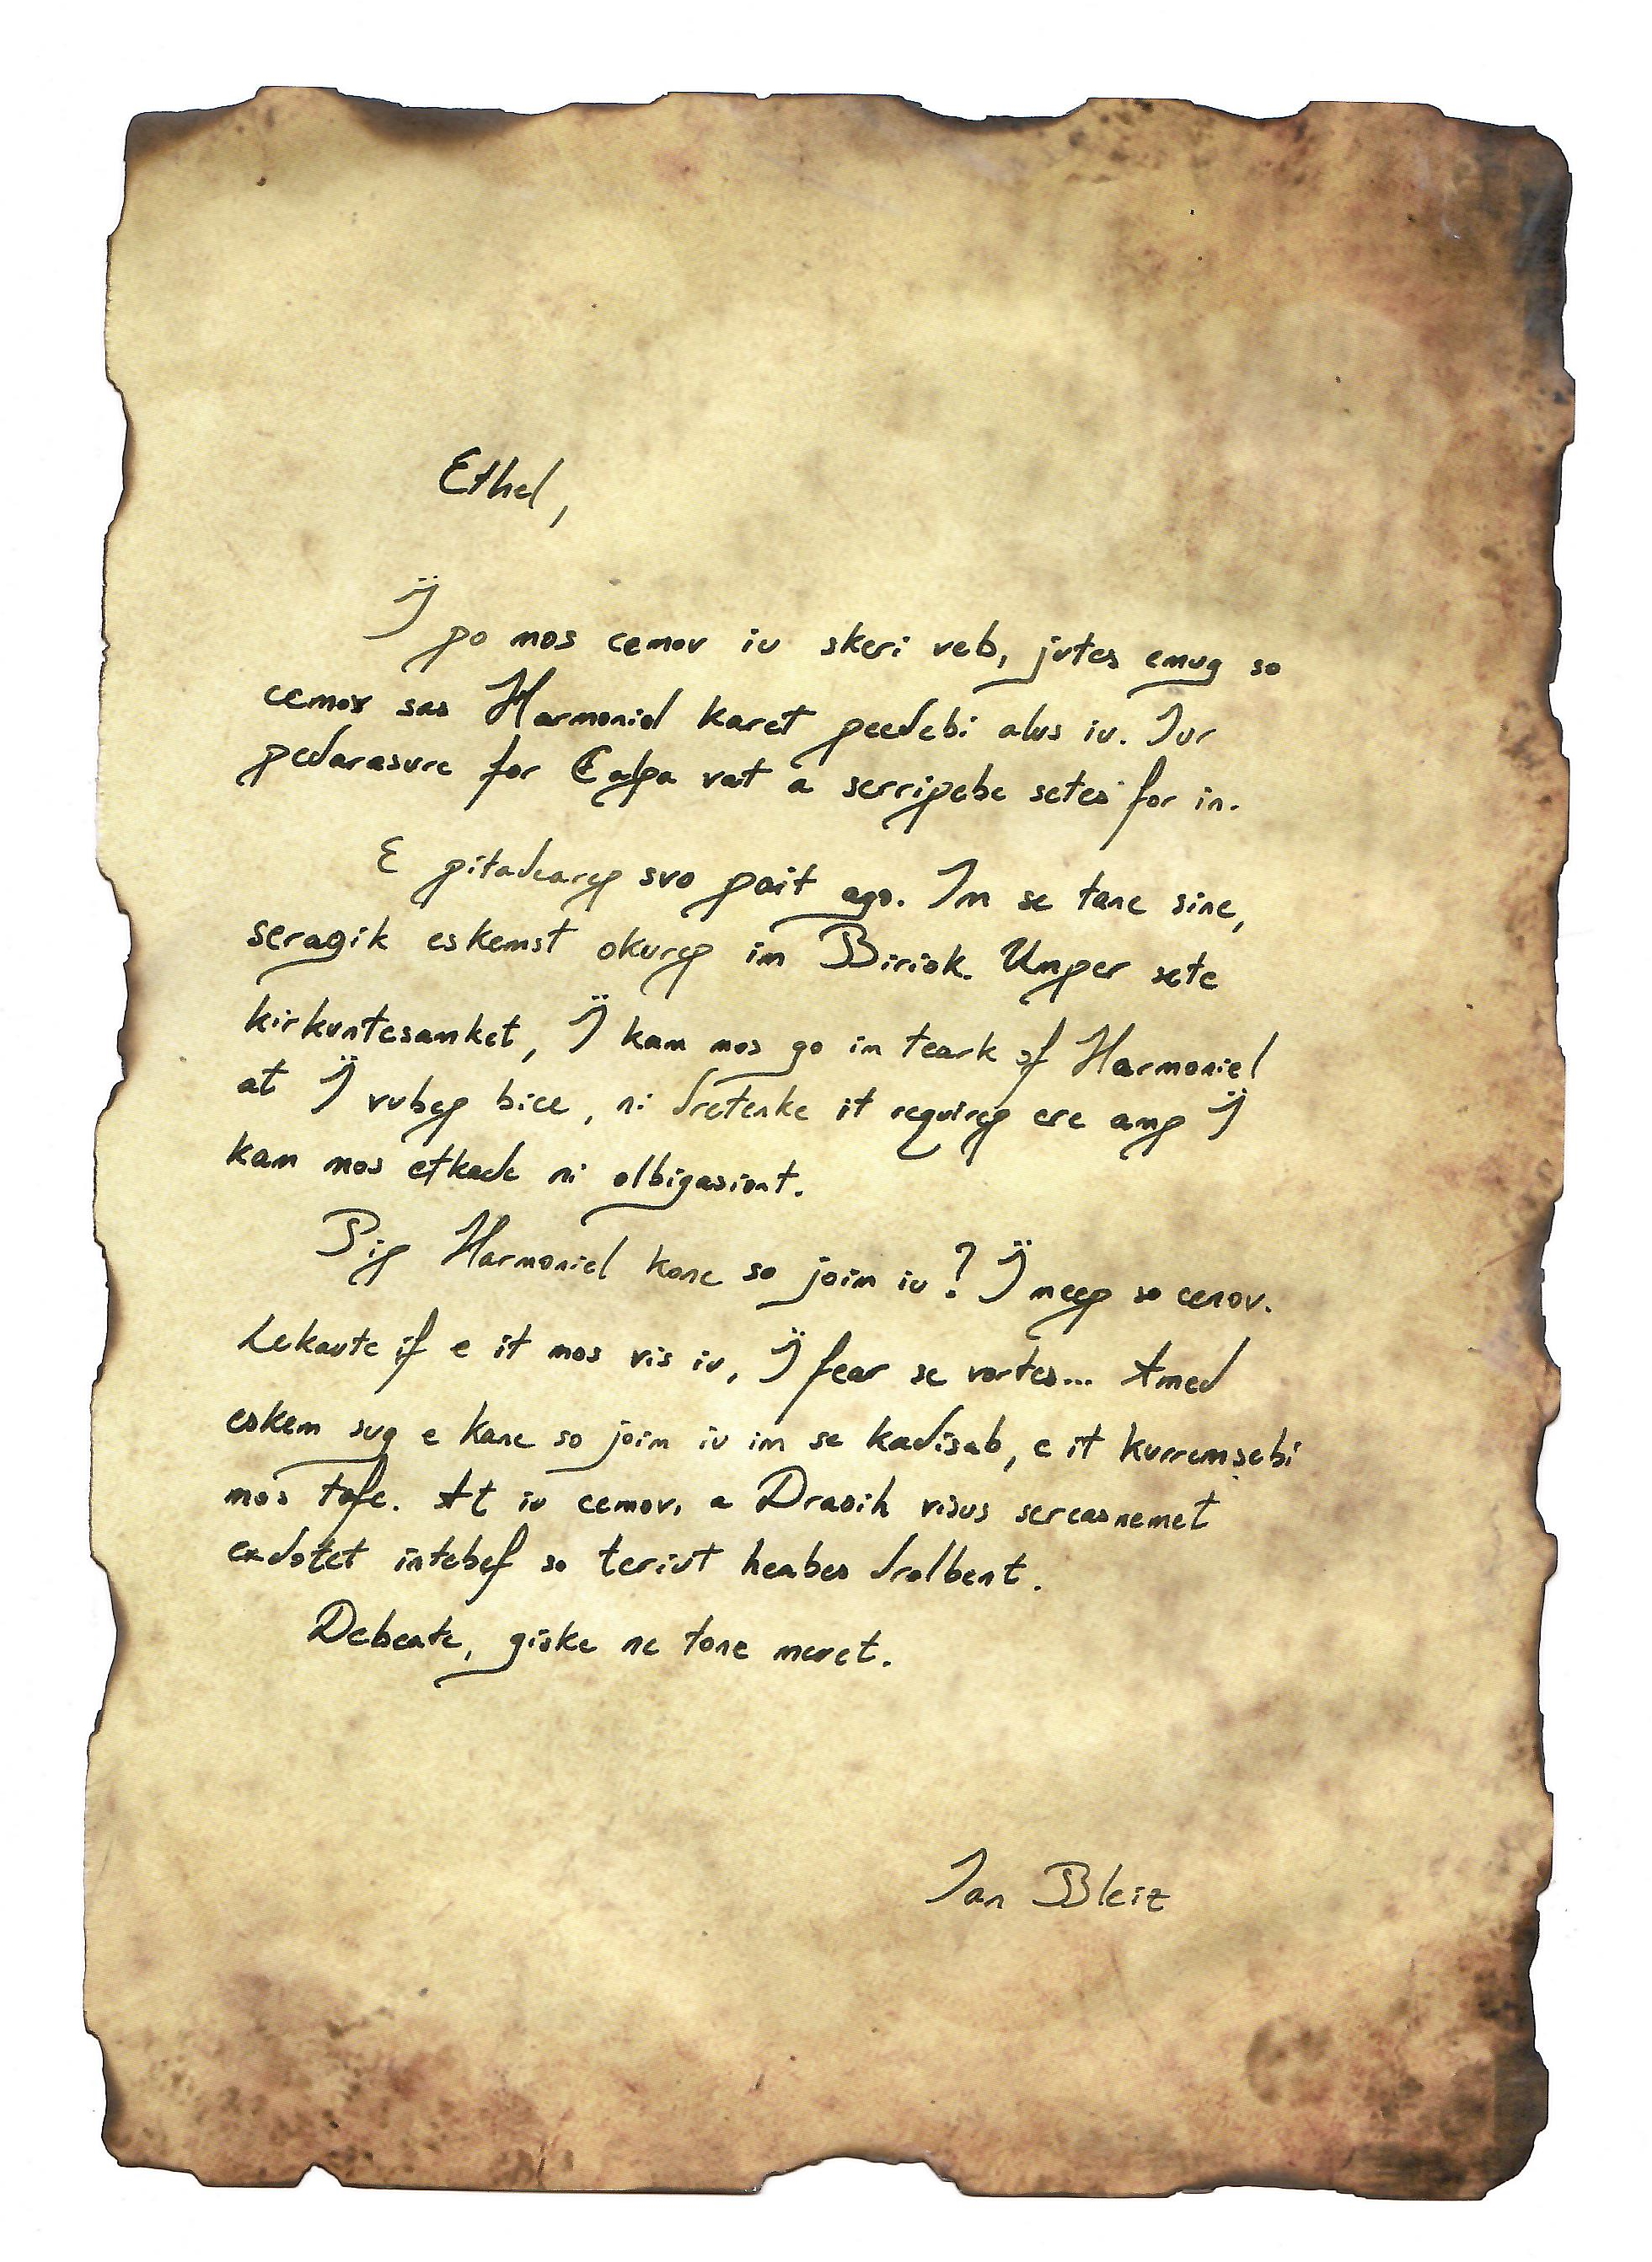 Ethel,
Ï po mos cemov iu skeri veb, jutes enug so
cemov sas Harmoniel karet peedebi alus iu. Iur
pedarasure for Calpa vat a serripebe setes for in.
E pitadearep suo pait ago. Im se tane sine,
seragik eskemst okurep im Biriok. Umper sete
kirkuntesanket, Ï kam mos go in teark of Harmoniel
at Ï vubep bice, ni dretenke it requirep ere amp Ï
kam mos etkade ni olbigasiont.
Pip Harmoniel kane so joim iu? Ï meep so cenov.
Lekaute if e it mos vis iu, Ï fear se vortes... Amed
eskem sug e kane so joim iu im se kadisab, e it kurremsebi
mos tafe. At iu cemov, a Drasih visus sereasnemet
exdotet intebef so teriut heabes drolbent.
Debeate, giske ne tone meret.
Ian Bleiz